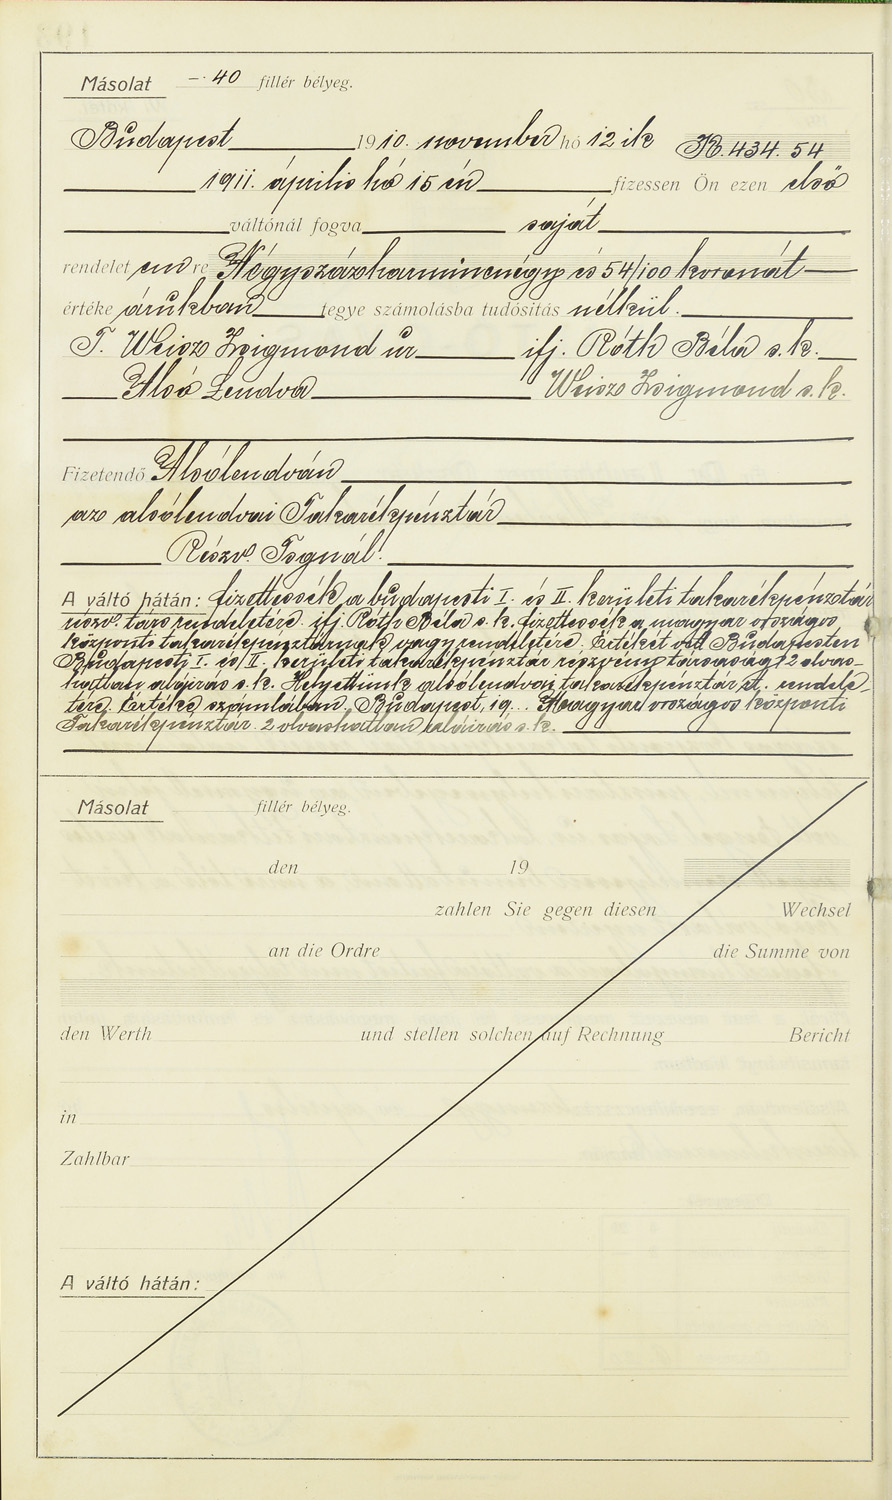 Másolat -· 40 fillér bélyeg.
Budapest 1910. november hó 12 ik K. 434. 54
1911. április hó 15 én fizessen Ön ezen első
váltónál fogva saját
rendeletemre Négyszázharmincnégy és 54/100 koronát
értéke árukban tegye számolásba tudósitás nélkül.
T. Weisz Zsigmond úr ifj. Róth Béla s.k.
Alsó Lendva Weisz Zsigmond s.k.
Fizetendő Alsólendván
az alsólendvai Takarékpénztár
Részv. Tsgnál.
A váltó hátán: fizettessék a budapesti I. és II. kerületi takarékpénztár
részv. társ rendeletére. ifj. Róth Béla s.k. fizettessék a magyar országos
központi takarékpénztárnak vagy rendeletére. Értékét vett Budapesten
Budapesti I. és II. kerületi takarékpénztár részvény társaság 2 olvas-
hatlan aláírás s.k. Helyettünk alsólendvai takarékpénztár rt. rendele-
tére. Értéke számlában. Budapest, 19... Magyar országos központi
Takarékpénztár. 2 olvashatlan aláírás s.k.
Másolat fillér bélyeg.
den 19
zahlen Sie gegen diesen Wechsel
an die Ordre die Summe von
den Werth und stellen solchen auf Rechnung Bericht
in
Zahlbar
A váltó hátán: